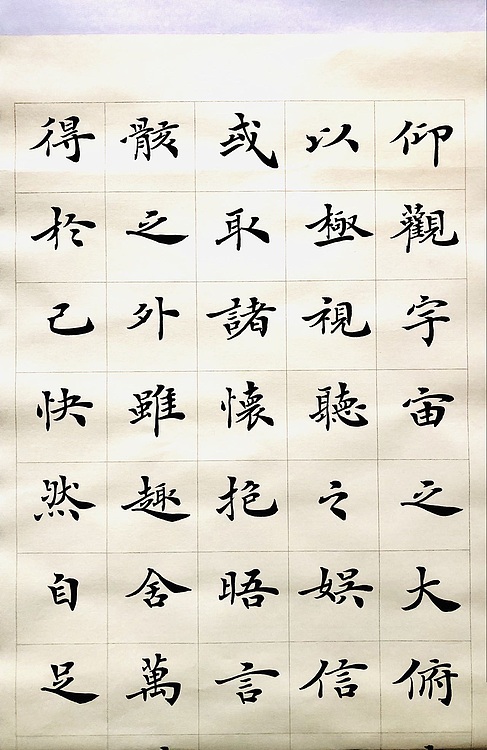 仰觀宇宙之大俯
以極視聽之娛信
或取諸懷抱晤言
骸之外雖趣舍萬
得於己快然自足